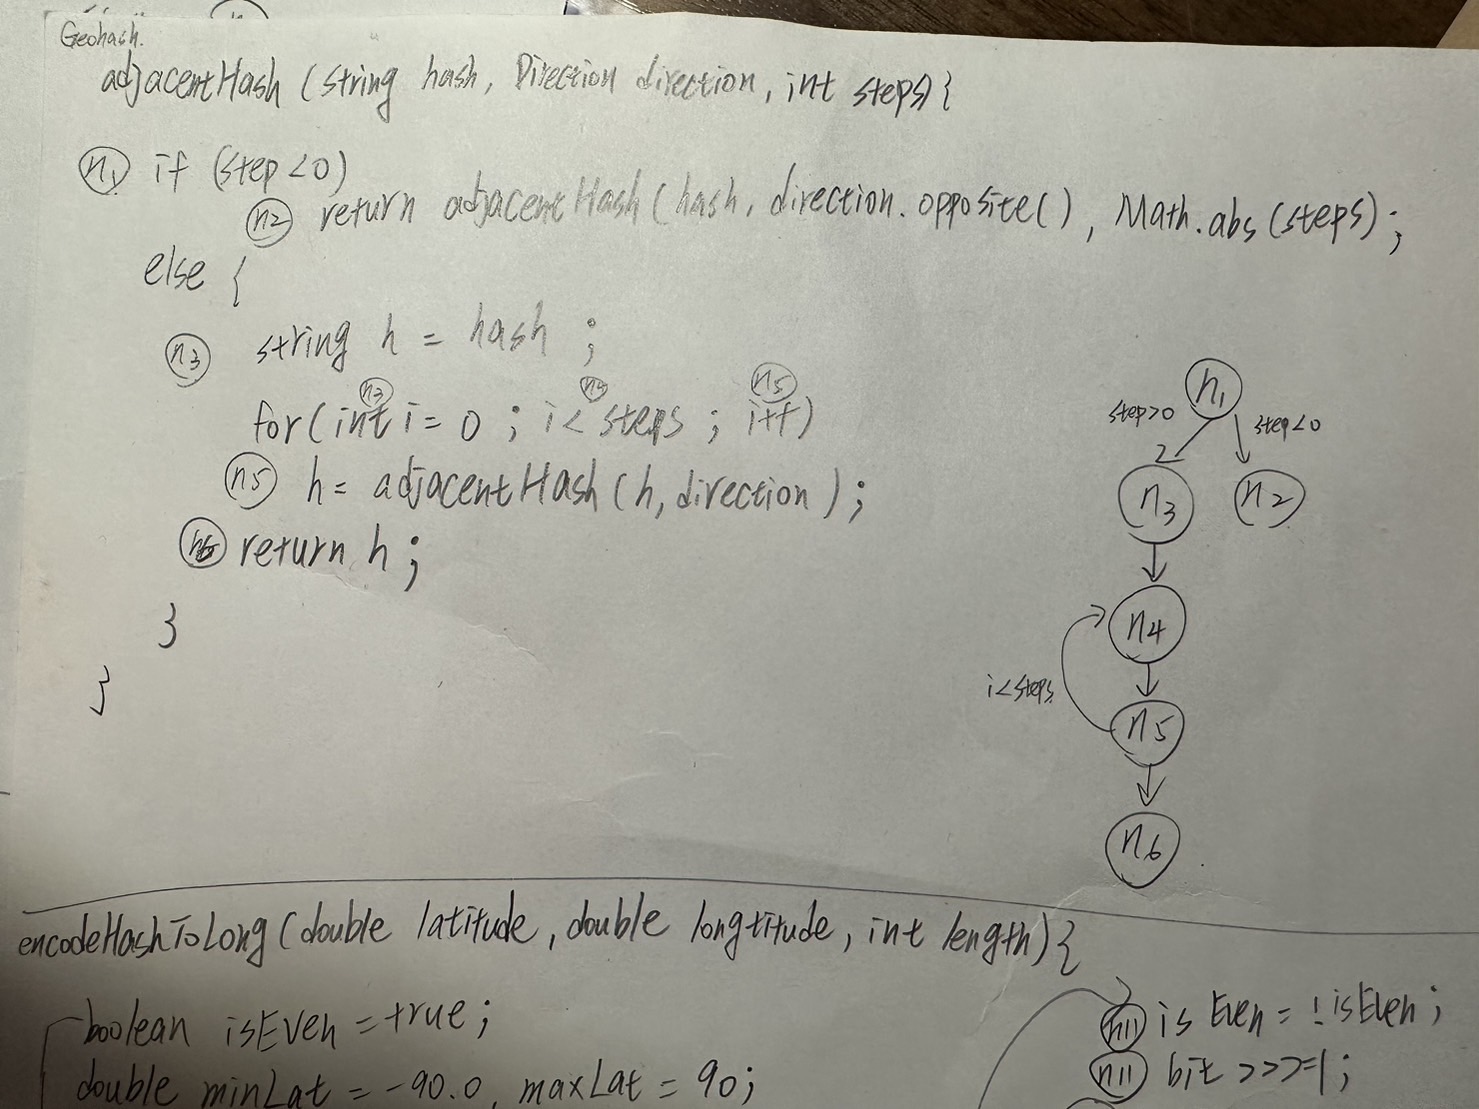 Geohash.
adjacentHash (string hash, Direction direction, int steps) {
n1 if (step <0)
n2 return adjacent Hash (hash, direction.opposite(), Math.abs(steps);
else {
n3 string h = hash ;
n3 n4 n5
for(int i = 0 ; i< steps ; i++)
n5 h= adjacentHash (h, direction) ;
n6 return h ;
}
}
n1
step>0 step<0
n3 n2
n4
i<steps
n5
n6
encodeHashToLong (double latitude, double longtitude, int length) {
boolean isEven = true;
double minLat = -90.0, maxLat = 90;
n11 is Even = !isEven;
n11 bit >>>=1;